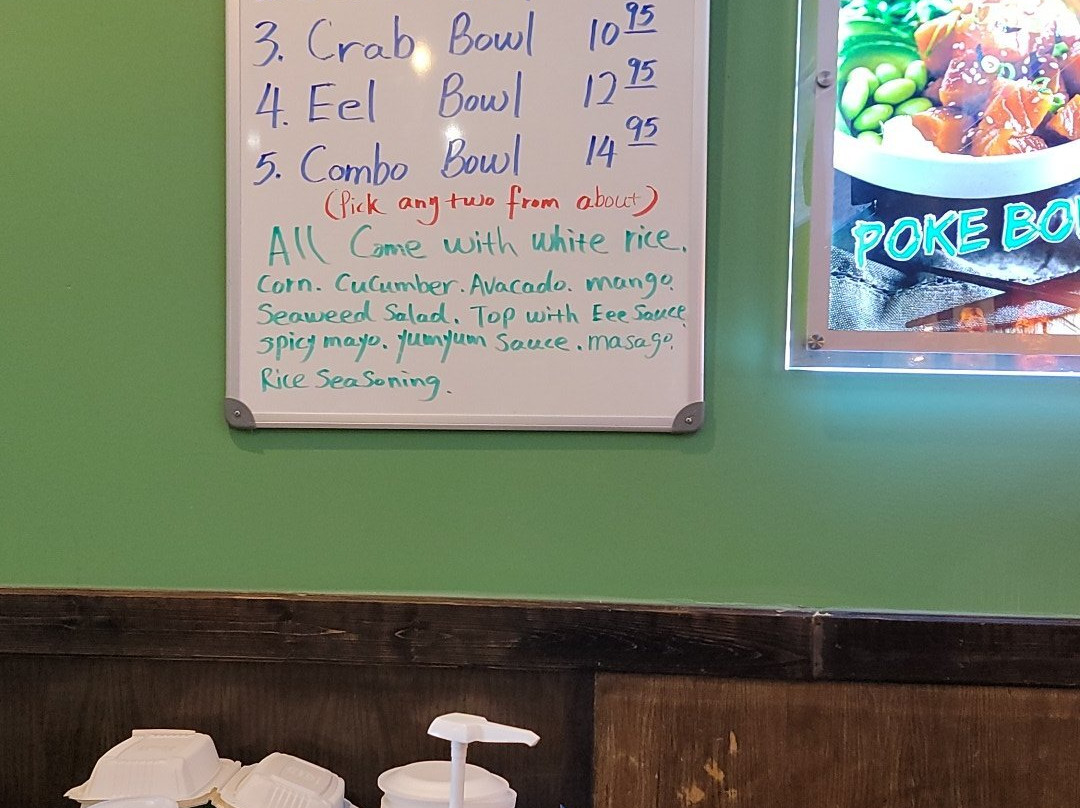 3. Crab Bowl 10 95
4. Eel Bowl 12 95
5. Combo Bowl 14 95
(Pick any two from about)
All Come with white rice.
Corn. Cucumber. Avacado. mango.
Seaweed Salad. Top with Eee Sauce
spicy mayo. yumyum Sauce. masago.
Rice Seasoning.
POKE BO